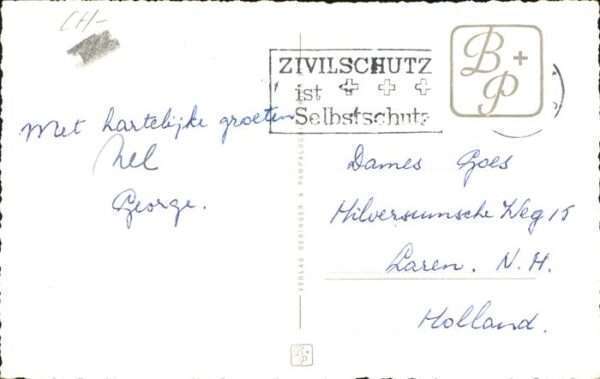 CH-
B+P
ZIVILSCHUTZ
ist
Selbstschutz
Met hartelijke groeten
Nel
George.
VERLAG BEHRINGER & PAMPALUCHI
Dames Goes
Hilversumsche Weg 15
Laren. N.H.
Holland.